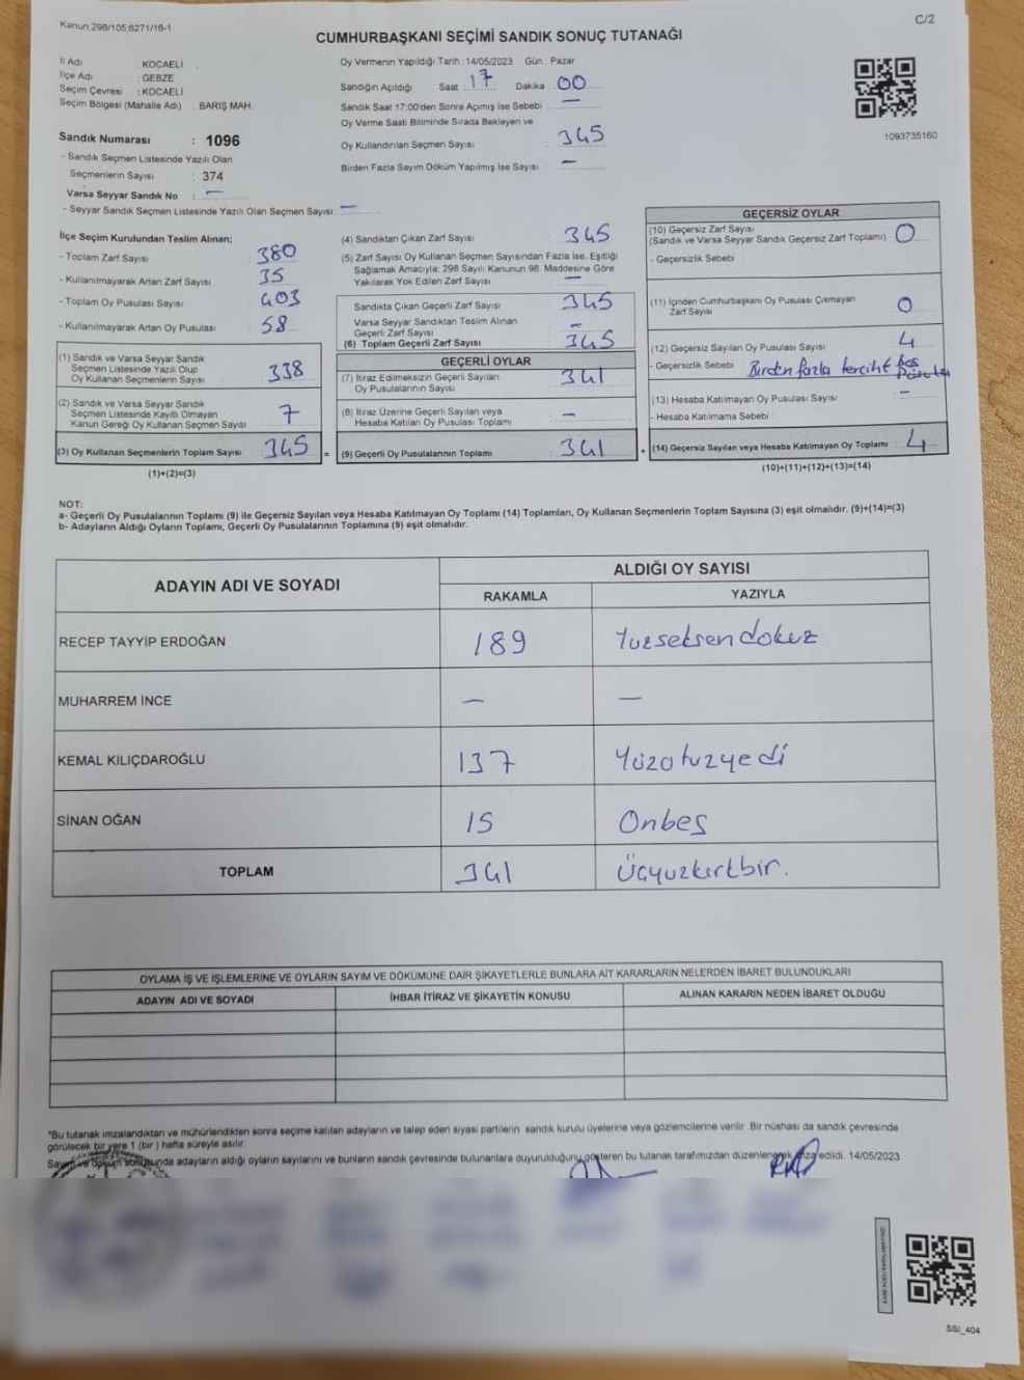 Kanun 298/105,6271/16-1
C/2
CUMHURBAŞKANI SEÇİMİ SANDIK SONUÇ TUTANAĞI
İl Adı KOCAELİ
İlçe Adı GEBZE
Seçim Çevresi : KOCAELİ
Seçim Bölgesi (Mahalle Adı) BARIŞ MAH.
Sandık Numarası : 1096
- Sandık Seçmen Listesinde Yazılı Olan
Seçmenlerin Sayısı : 374
Varsa Seyyar Sandık No : —
- Seyyar Sandık Seçmen Listesinde Yazılı Olan Seçmen Sayısı —
Oy Vermenin Yapıldığı Tarih : 14/05/2023 Gün : Pazar
Sandığın Açıldığı Saat : 17 Dakika 00
Sandık Saat 17:00'den Sonra Açımış İse Sebebi —
Oy Verme Saati Bitiminde Sırada Bekleyen ve
Oy Kullandırılan Seçmen Sayısı 345
Birden Fazla Sayım Döküm Yapılmış İse Sayısı —
1093735160
İlçe Seçim Kurulundan Teslim Alınan;
- Toplam Zarf Sayısı 380
- Kullanılmayarak Artan Zarf Sayısı 35
- Toplam Oy Pusulası Sayısı 403
- Kullanılmayarak Artan Oy Pusulası 58
(1) Sandık ve Varsa Seyyar Sandık
Seçmen Listesinde Yazılı Olup
Oy Kullanan Seçmenlerin Sayısı 338
(2) Sandık ve Varsa Seyyar Sandık
Seçmen Listesinde Kayıtlı Olmayan
Kanun Gereği Oy Kullanan Seçmen Sayısı 7
(3) Oy Kullanan Seçmenlerin Toplam Sayısı 345 =
(1)+(2)=(3)
(4) Sandıktan Çıkan Zarf Sayısı 345
(5) Zarf Sayısı Oy Kullanan Seçmen Sayısından Fazla İse, Eşitliği
Sağlamak Amacıyla; 298 Sayılı Kanunun 98. Maddesine Göre
Yakılarak Yok Edilen Zarf Sayısı —
Sandıkta Çıkan Geçerli Zarf Sayısı 345
Varsa Seyyar Sandıktan Teslim Alınan
Geçerli Zarf Sayısı —
(6) Toplam Geçerli Zarf Sayısı 345
GEÇERLİ OYLAR
(7) İtiraz Edilmeksizin Geçerli Sayılan
Oy Pusulalarının Sayısı 341
(8) İtiraz Üzerine Geçerli Sayılan veya
Hesaba Katılan Oy Pusulası Toplamı —
(9) Geçerli Oy Pusulalarının Toplamı 341 +
GEÇERSİZ OYLAR
(10) Geçersiz Zarf Sayısı
(Sandık ve Varsa Seyyar Sandık Geçersiz Zarf Toplamı) 0
- Geçersizlik Sebebi
(11) İçinden Cumhurbaşkanı Oy Pusulası Çıkmayan
Zarf Sayısı 0
(12) Geçersiz Sayılan Oy Pusulası Sayısı 4
- Geçersizlik Sebebi Birden fazla tercih boş pusula
(13) Hesaba Katılmayan Oy Pusulası Sayısı —
- Hesaba Katılmama Sebebi
(14) Geçersiz Sayılan veya Hesaba Katılmayan Oy Toplamı 4
(10)+(11)+(12)+(13)=(14)
NOT:
a- Geçerli Oy Pusulalarının Toplamı (9) ile Geçersiz Sayılan veya Hesaba Katılmayan Oy Toplamı (14) Toplamları, Oy Kullanan Seçmenlerin Toplam Sayısına (3) eşit olmalıdır. (9)+(14)=(3)
b- Adayların Aldığı Oyların Toplamı, Geçerli Oy Pusulalarının Toplamına (9) eşit olmalıdır.
ADAYIN ADI VE SOYADI
ALDIĞI OY SAYISI
RAKAMLA YAZIYLA
RECEP TAYYİP ERDOĞAN 189 Yuzseksendokuz
MUHARREM İNCE — —
KEMAL KILIÇDAROĞLU 137 Yüzotuzyedi
SİNAN OĞAN 15 Onbeş
TOPLAM 341 Üçyuzkırkbir.
OYLAMA İŞ VE İŞLEMLERİNE VE OYLARIN SAYIM VE DÖKÜMÜNE DAİR ŞİKAYETLERLE BUNLARA AİT KARARLARIN NELERDEN İBARET BULUNDUKLARI
ADAYIN ADI VE SOYADI İHBAR İTİRAZ VE ŞİKAYETİN KONUSU ALINAN KARARIN NEDEN İBARET OLDUĞU
*Bu tutanak imzalandıktan ve mühürlendikten sonra seçime katılan adayların ve talep eden siyasi partilerin sandık kurulu üyelerine veya gözlemcilerine verilir. Bir nüshası da sandık çevresinde
görülecek bir yere 1 (bir ) hafta süreyle asılır.
Sayım ve döküm sonucunda adayların aldığı oyların sayılarını ve bunların sandık çevresinde bulunanlara duyurulduğunu gösteren bu tutanak tarafımızdan düzenlenerek imza edildi. 14/05/2023
SSI_404